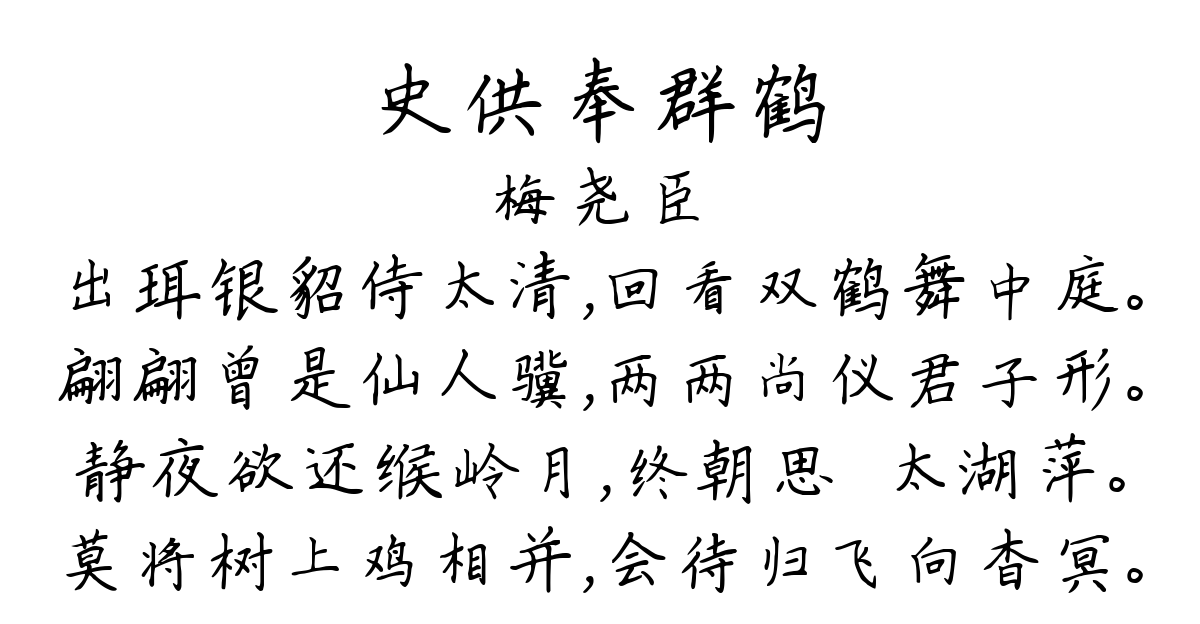 史供奉群鹤
梅尧臣
出珥银貂侍太清,回看双鹤舞中庭。
翩翩曾是仙人骥,两两尚仪君子形。
静夜欲还缑岭月,终朝思 太湖萍。
莫将树上鸡相并,会待归飞向杳冥。